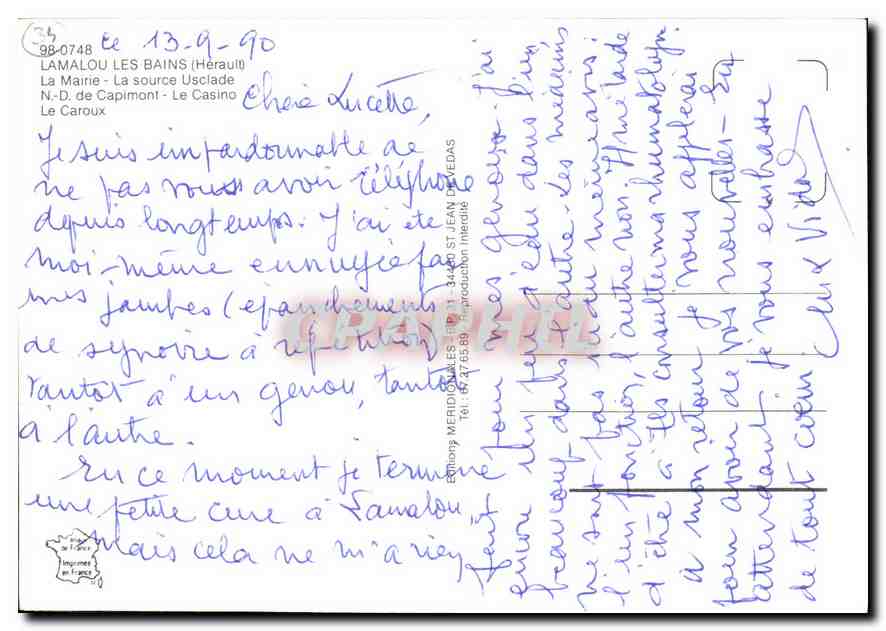 34
98-0748 ce 13-9-90
LAMALOU LES BAINS (Hérault)
La Mairie - La source Usclade
N.-D. de Capimont - Le Casino
Le Caroux
Chère Lucette,
Je suis impardonnable de
ne pas vous avoir téléphone
depuis longtemps. J'ai été
moi-même ennuyée par
mes jambes (épanchements
de synovie à répétition)
tantôt à un genou, tantôt
à l'autre.
En ce moment je termine
une petite cure à Lamalou
Mais cela ne m'a rien
fait pour mes genoux. J'ai
encore un peu d'eau dans l'un
beaucoup dans l'autre. Les médecins
ne sont pas du même avis:
l'un ponction, l'autre non. Il me tarde
d'être à consulter ma rhumatologue.
à mon retour je vous appellerai
pour avoir de vos nouvelles - En
attendant je vous embrasse
de tout coeur.
Editions MERIDIONALES - B.P. 31 - 34430 ST JEAN DE VEDAS
Tél.: 67.27.65.89 Reproduction Interdite
CPAPHIL
de France
Imprimés
en France